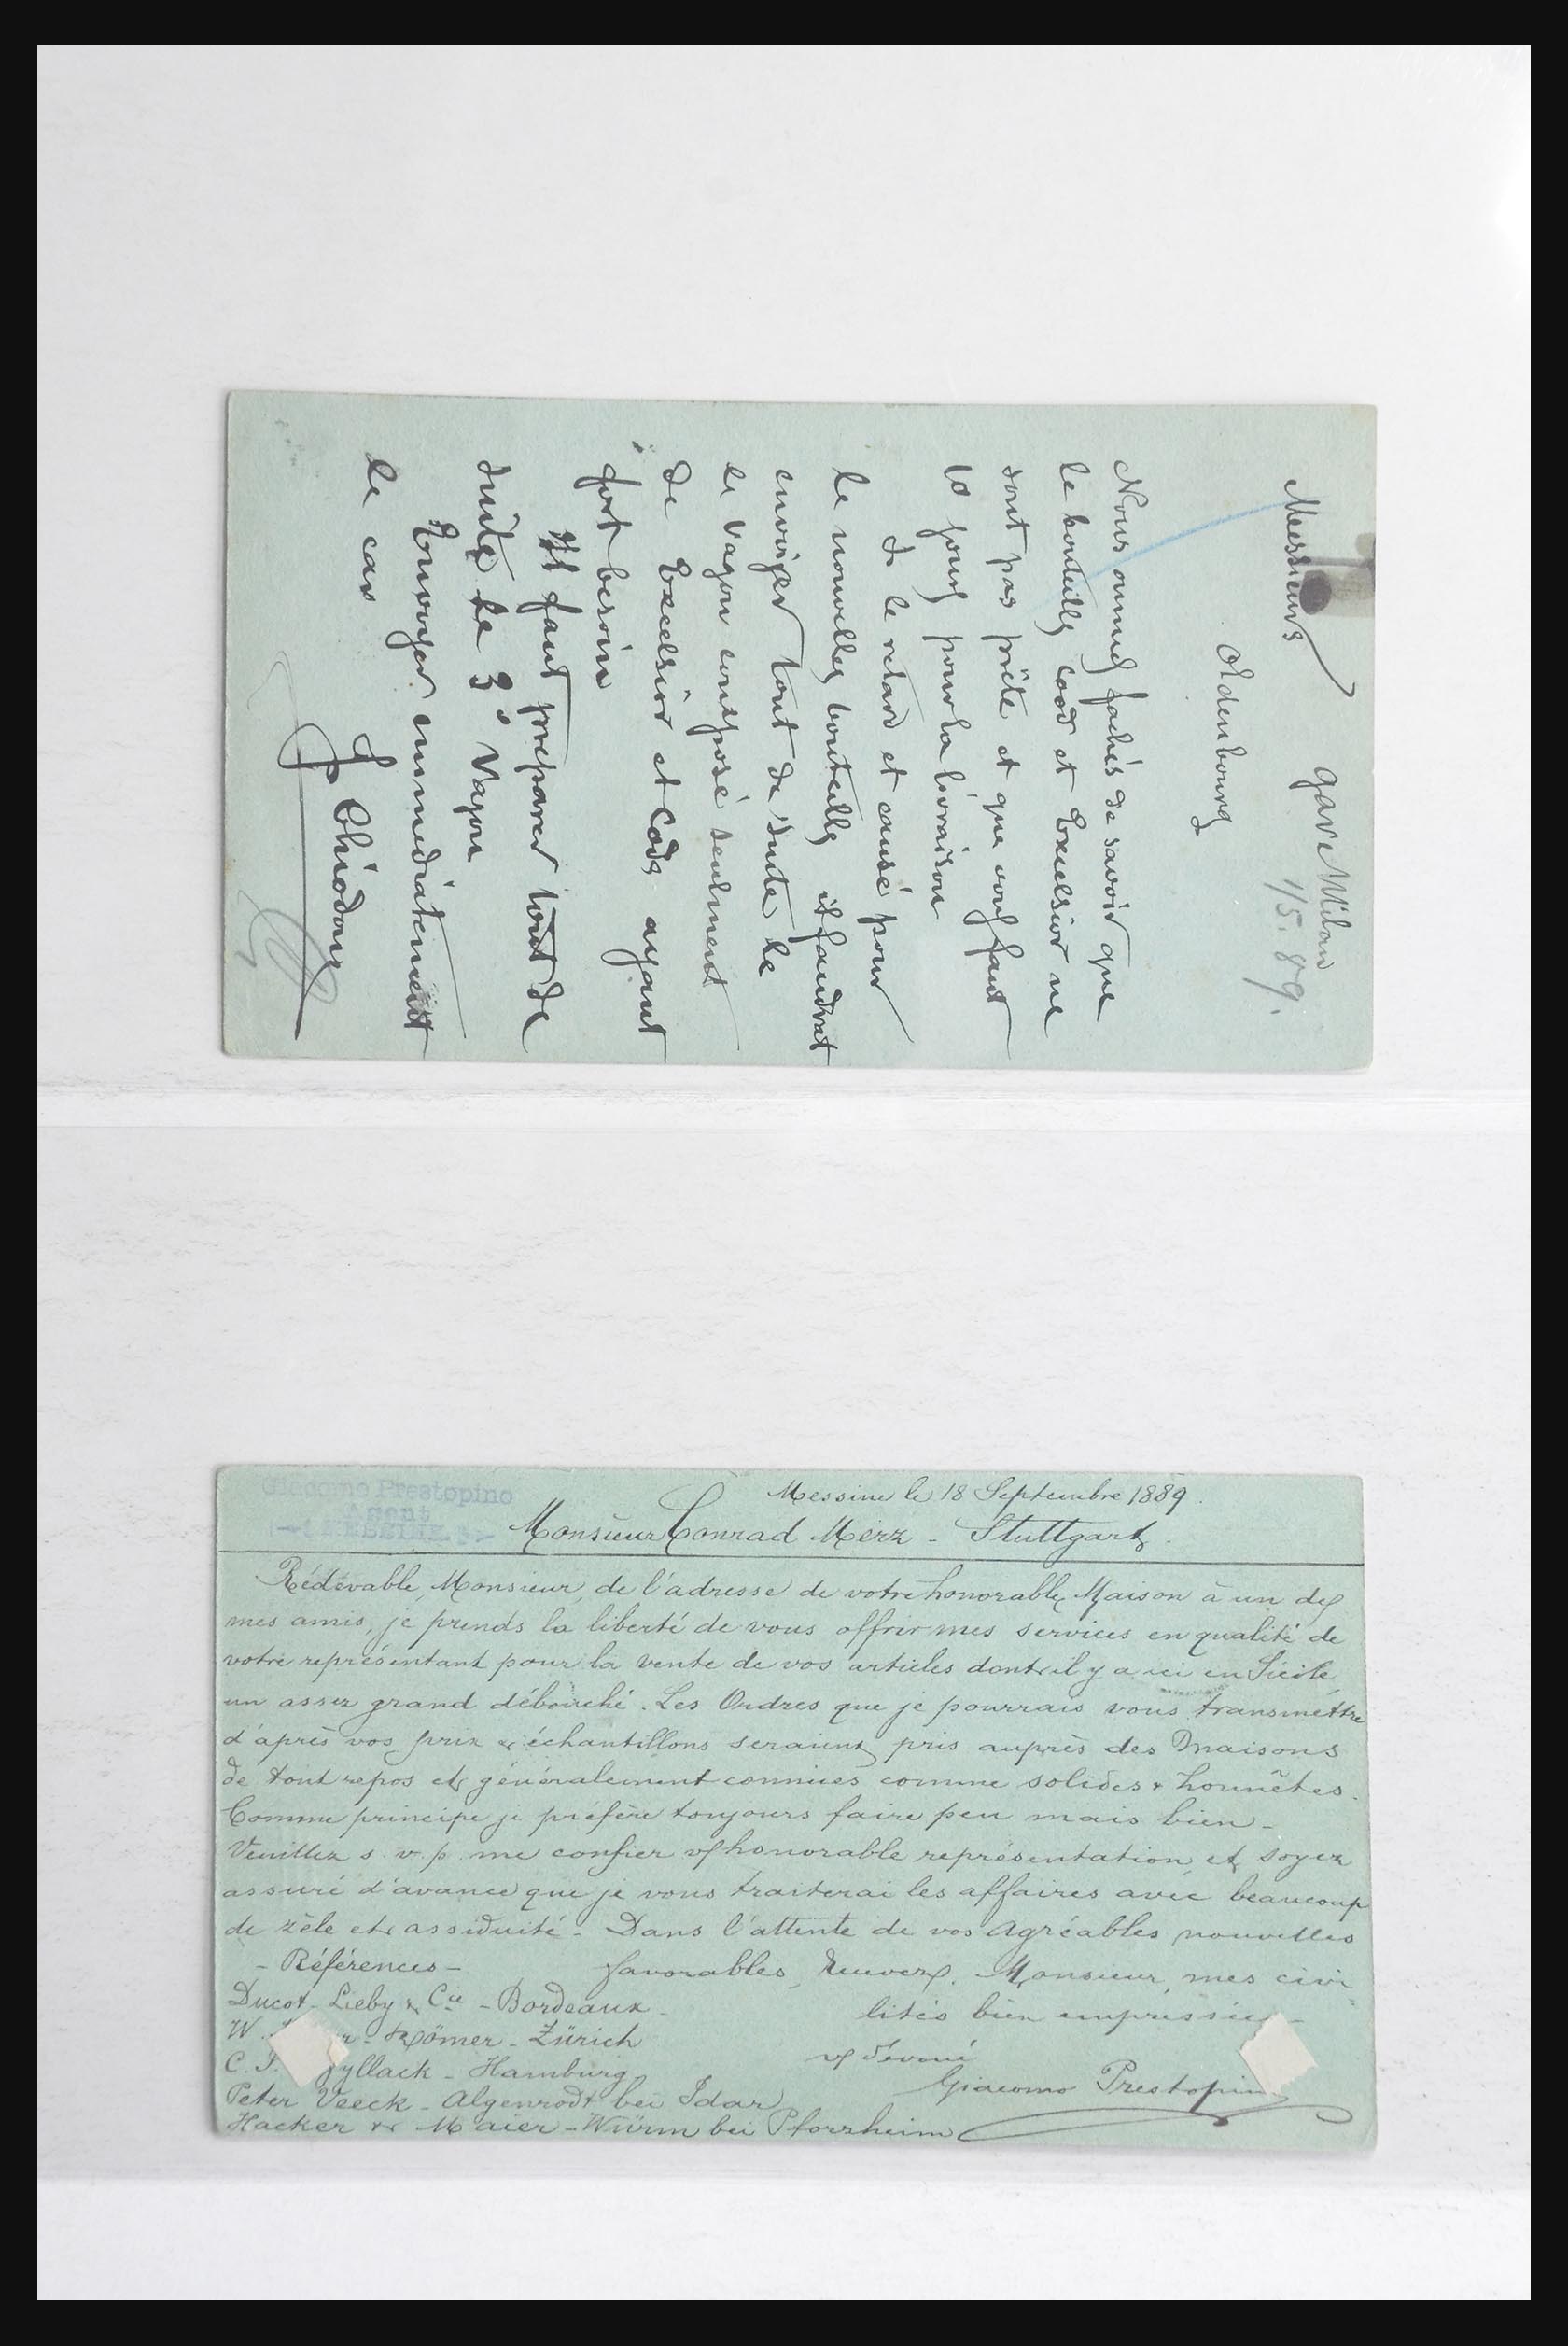 Messieurs gare Milan
1/5. 89.
Oldenbourg
Nous fachés de savoir que
le bouteilly cood et Excelsior ne
sont pas prête et que vous faut
10 jours pour la livraison
le retard et causé pour
le nouvelles bouteilly il faudrat
envoyer tout de suite le
le Vagon composé seulment
de Excelsior et Cods ayant
fort besoin
Il faut preparer tout de
suite le 3º Vagon
Envoyer immediatement
le car
Chiodony
Giacomo Prestopino
Agent
MESSINE
Messine le 18 Septembre 1889.
Monsieur Conrad Merz - Stuttgart.
Rédévable, Monsieur, de l'adresse de votre honorable Maison à un des
mes amis, je prends la liberté de vous offrir mes services en qualité de
votre représentant pour la vente de vos articles dont il y a ici en Sicile
un assez grand débouché. Les Ordres que je pourrais vous transmettre
d'après vos prix & échantillons seraient pris auprès des Maisons
de tout repos et généralement connues comme solides & honnêtes.
Comme principe je préfère toujours faire peu mais bien -
Veuillez s. v. p. me confier v/ honorable représentation et soyez
assuré d'avance que je vous traiterai les affaires avec beaucoup
de zèle et assiduité - Dans l'attente de vos agréables nouvelles
- Références - favorables, Monsieur, mes civi
Ducot - Lieby & Cie - Bordeaux - lités bien empressées -
W. Römer - Zürich
C. J. yllack - Hamburg v/ dévoué
Peter Veeck - Algenrodt bei Idar Giacomo Prestopin
Hacker & Maier - Würm bei Pforzheim